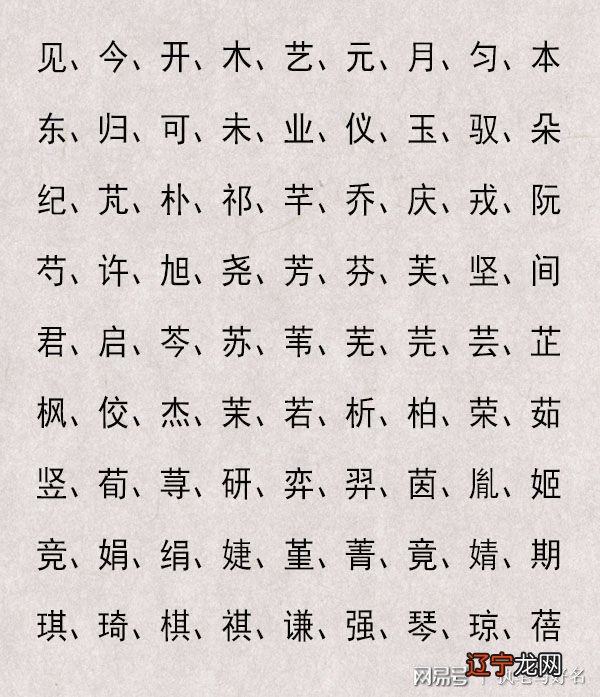 见、今、开、木、艺、元、月、匀、本
东、归、可、未、业、仪、玉、驭、朵
纪、芃、朴、祁、芊、乔、庆、戎、阮
芍、许、旭、尧、芳、芬、芙、坚、间
君、启、芩、苏、苇、芜、芫、芸、芷
枫、佼、杰、茉、若、析、柏、荣、茹
竖、荀、荨、研、弈、羿、茵、胤、姬
竞、娟、绢、婕、堇、菁、竟、婧、期
琪、琦、棋、祺、谦、强、琴、琼、蓓
网易号
辽宁龙网
好名